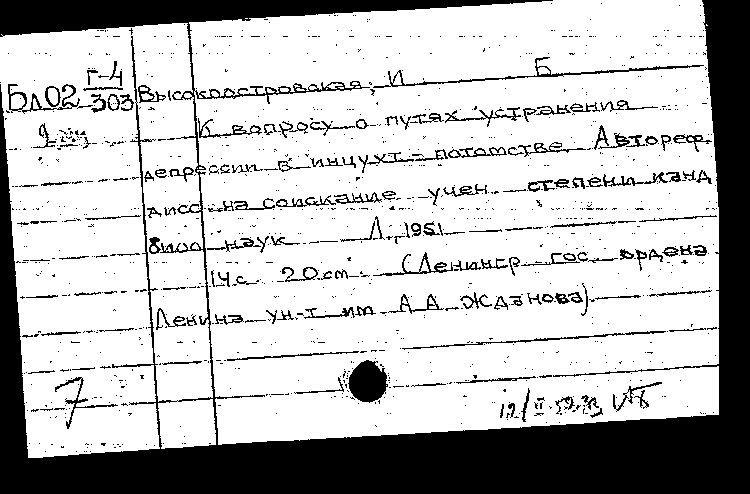 Бл02 Г-4/303
Высокоостровская, И. Б.
2 экз
К вопросу о путях устранения
депрессии в инцухт-потомстве. Автореф.
дисс. на соискание учен. степени канд.
биол. наук Л., 1951
14 с. 20 cm. (Ленингр. гос. ордена
Ленина ун-т им А А Жданова).
7